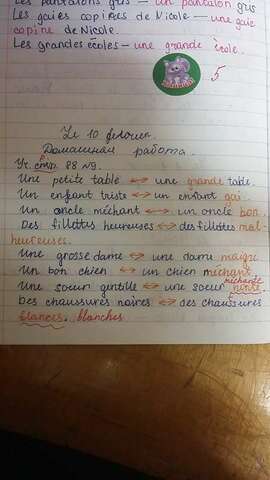 Les pantalons gris — un pantalon gris
Les gaies copines de Nicole — une gaie
copine de Nicole.
Les grandes écoles — une grande école.
5
Le 10 février.
Домашняя работа.
Уч. стр. 88 №9.
Une petite table ↔ une grande table.
Un enfant triste ↔ un enfant gai.
Un oncle méchant ↔ un oncle bon.
Des fillettes heureuses ↔ des fillettes mal-
heureuses.
Une grosse dame ↔ une dame maigre
Un bon chien ↔ un chien méchant.
méchante
Une soeur gentille ↔ une soeur
Des chaussures noires ↔ des chaussures
blances. blanches